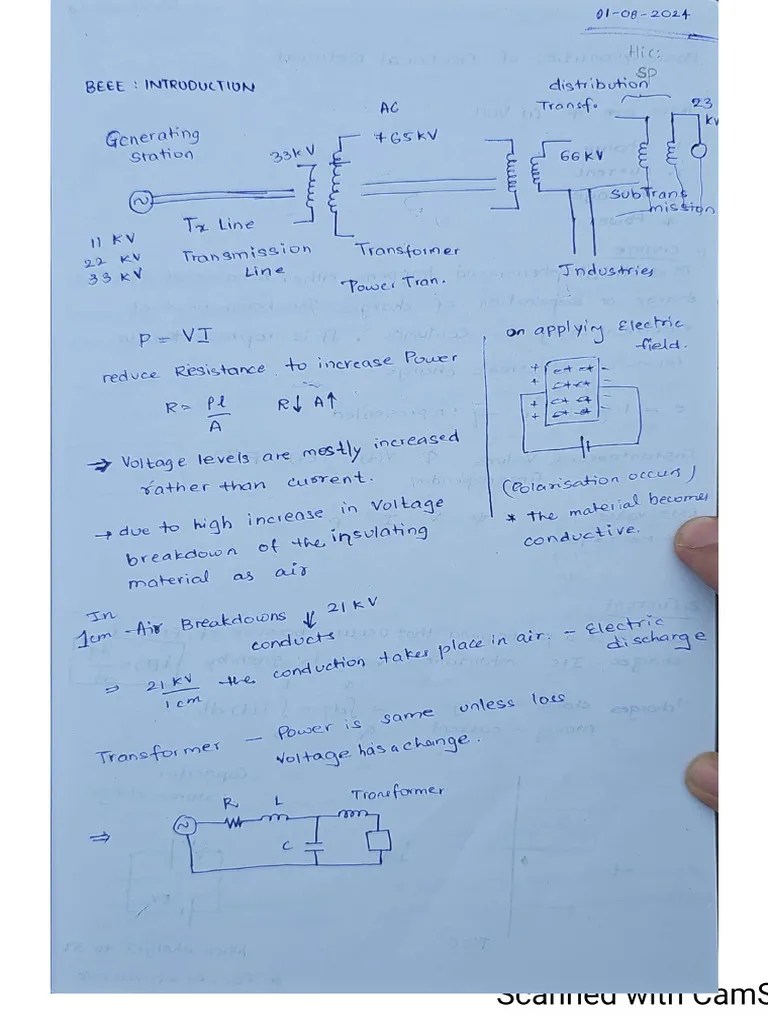 01-08-2024
BEEE : INTRODUCTION
Hic:
SP
distribution
Transf.
23
kV
AC
Generating
Station
33kV
765 kV
66 kV
SubTrans
mission
11 KV
22 KV
33 KV
Tx Line
Transmission
Line
Transformer
Power Tran.
Industries
P = VI
reduce Resistance to increase Power
R = ρl
A
R↓ A↑
→ Voltage levels are mostly increased
rather than current.
→ due to high increase in Voltage
breakdown of the insulating
material as air
on applying Electric
field.
+ -
+ -
+ -
+ -
(Polarisation occurs)
* The material becomes
conductive.
In
1cm - Air Breakdowns ↓ 21 KV
conducts
⇒ 21 KV
1 cm
the conduction takes place in air. - Electric
discharge
Transformer - Power is same unless loss
Voltage has a change.
⇒
R L Transformer
C
Scanned with CamS